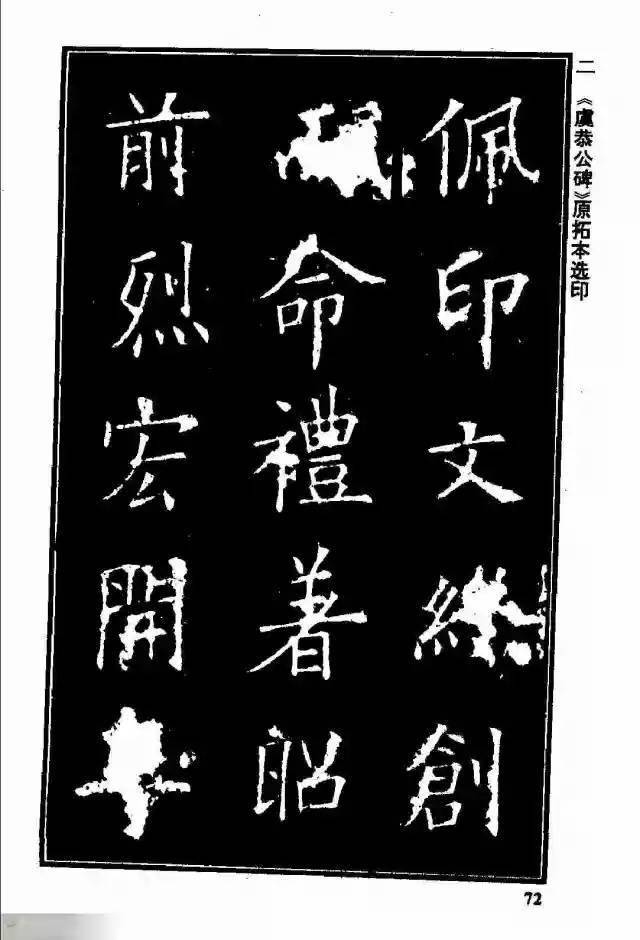 二 《虞恭公碑》原拓本选印
佩印文創
命禮著昭
前烈宏開
72